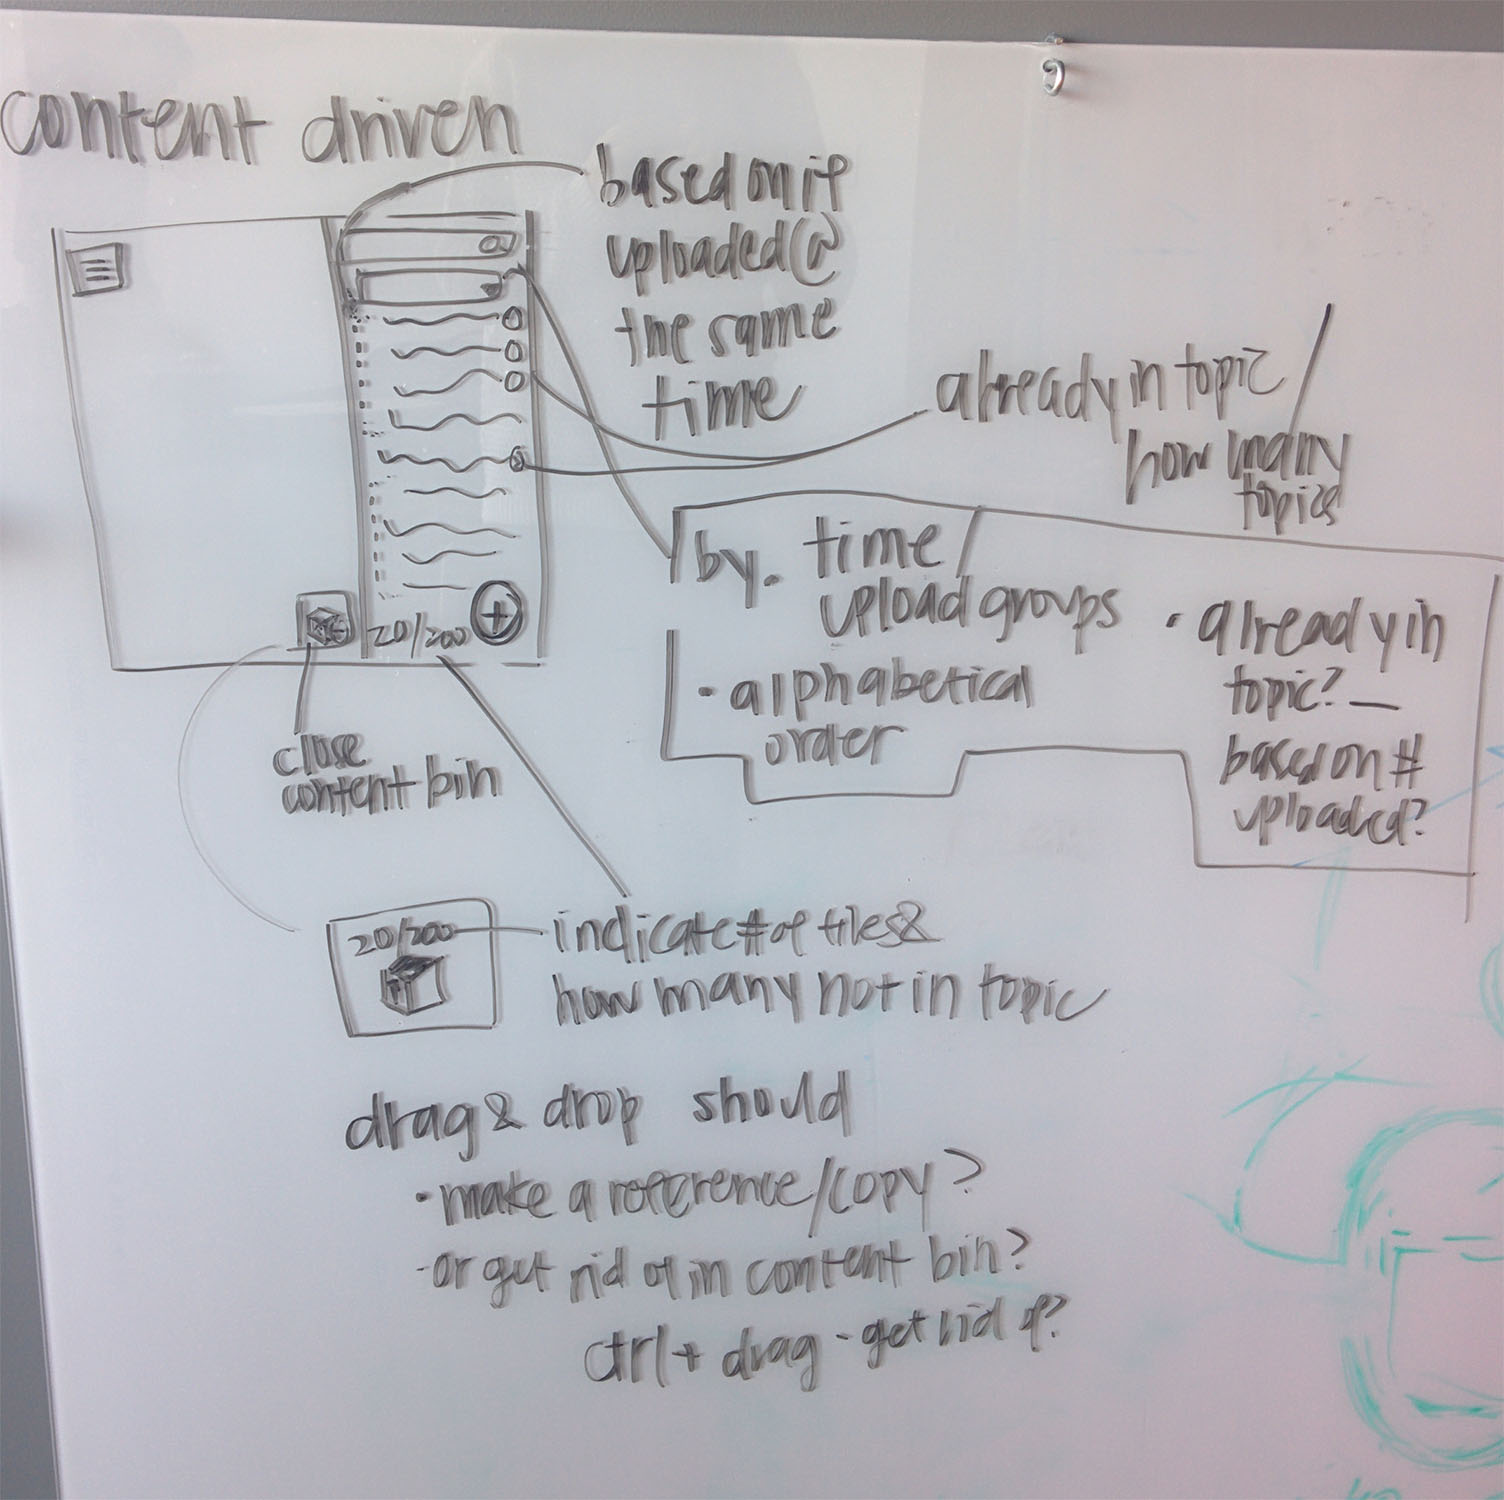 content driven
based on if
uploaded @
the same
time
already in topic
how many
topics
by. time/
upload groups
• alphabetical
order
• already in
topic? —
based on #
uploaded?
20/200
+
close
content bin
20/200
indicate # of files &
how many not in topic
drag & drop should
• make a reference/copy?
- or get rid of in content bin?
ctrl + drag - get rid of?